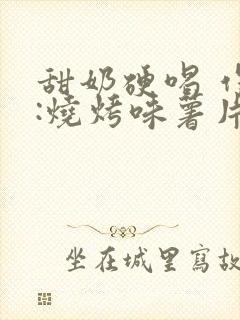 甜奶硬唱
:燒烤味薯片
坐在城里寫故